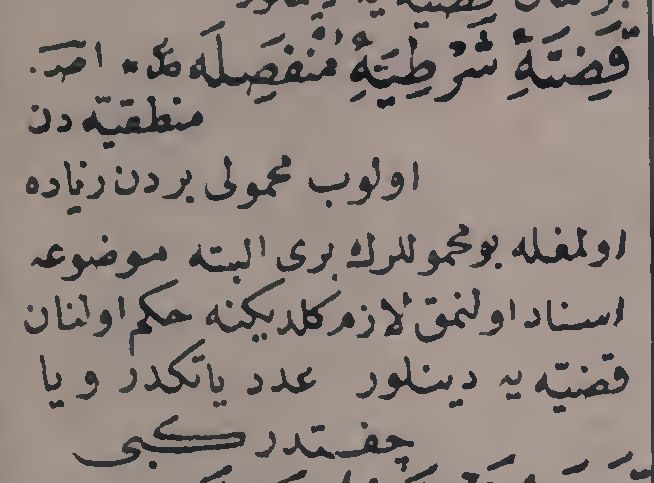 قَضِيَّةِ شَرْطِيَّةِ مُنْفَصِلَه عد اصـ.
منطقيه دن
اولوب محمولى بردن زياده
اولمغله بو محموللرك برى البته موضوعه
اسناد اولنمق لازم كلديكنه حكم اولنان
قضيّه يه دينلور عدد ياتكدر و يا
چفتدر كبى